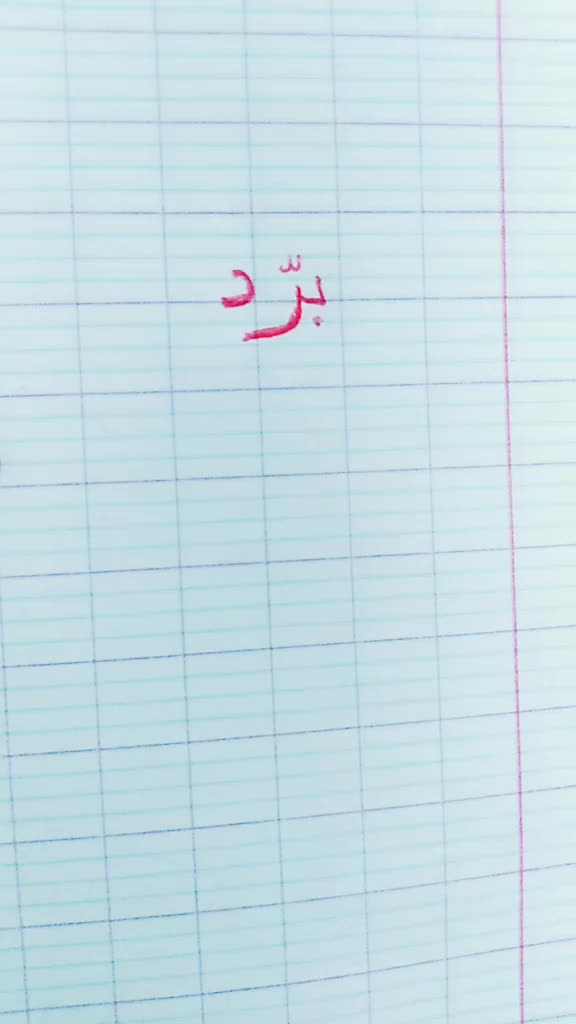 برّد